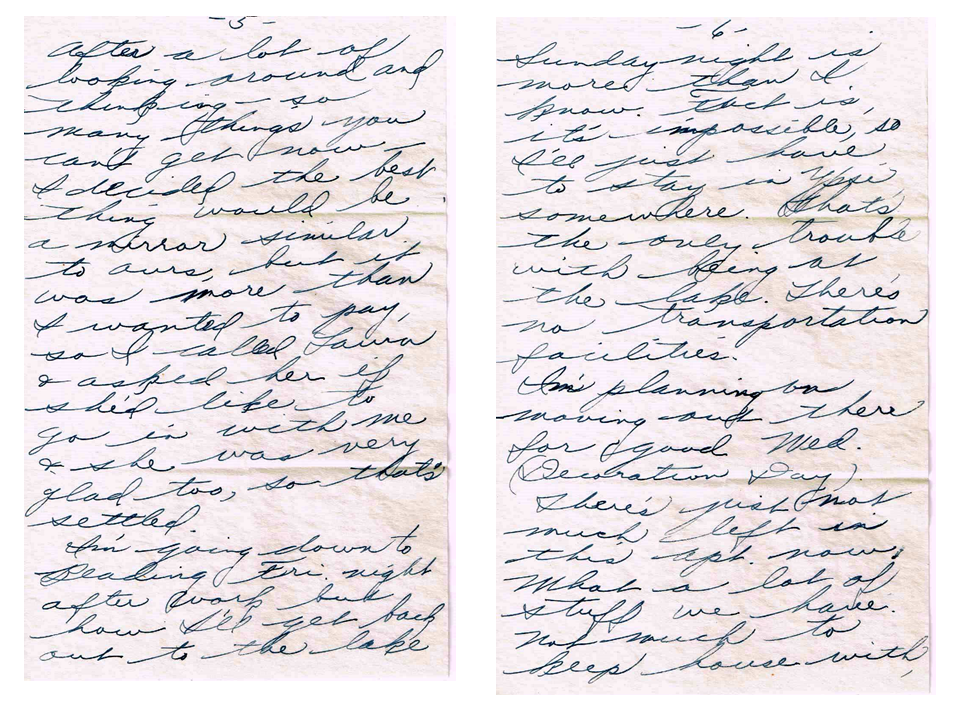 -5-
After a lot of
looking around and
thinking - so
many things you
can't get now -
I decided the best
thing would be
a mirror similar
to ours, but it
was more than
I wanted to pay,
so I called
& asked her if
she'd like to
go in with me
& she was very
glad too, so that's
settled.
I'm going down to
Reading Fri. night
after work but
how I'll get back
out to the lake
-6-
Sunday night is
more than I
know. Fact is,
it's impossible, so
I'll just have
to stay in Ypsi
somewhere. That's
the only trouble
with being at
the lake. There's
no transportation
facilities.
I'm planning on
moving out there
for good Wed.
(Decoration Day).
There's just not
much left in
this apt. now.
What a lot of
stuff we have.
Not much to
keep house with,